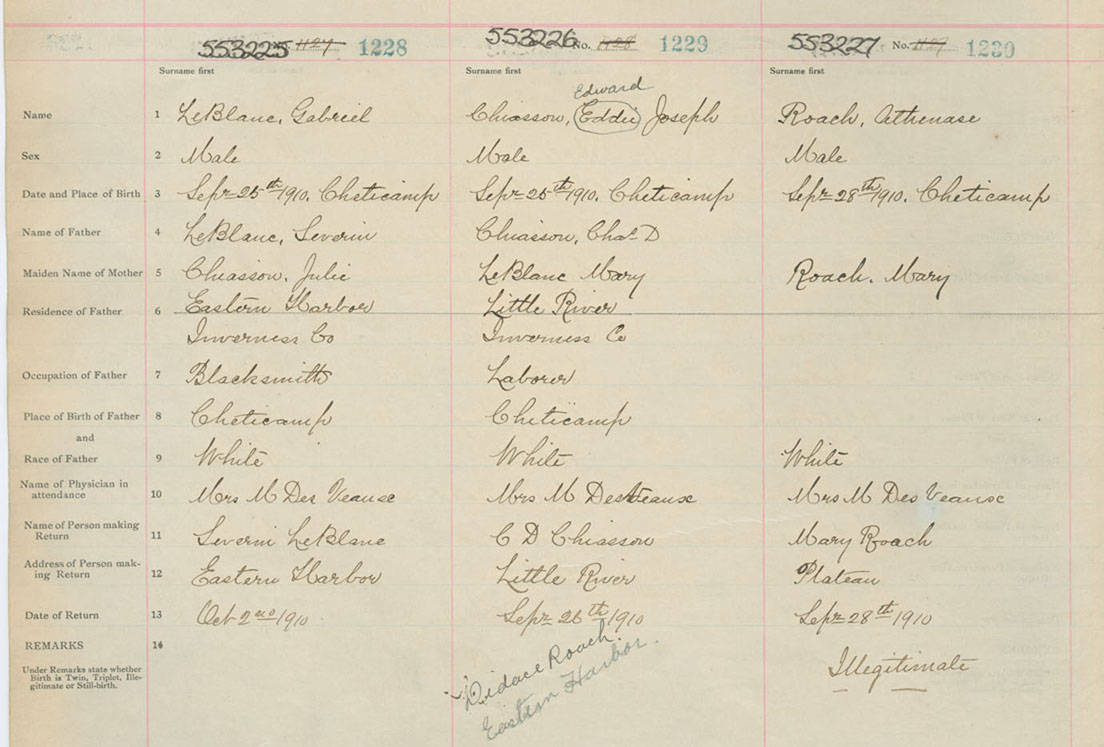 553225 No. 1127 1228 553226 No. 1128 1229 553227 No. 1129 1230
Surname first Surname first Surname first
Edward
Name 1 LeBlanc, Gabriel Chiasson, Eddie Joseph Roach, Athenase
Sex 2 Male Male Male
Date and Place of Birth 3 Sept 25th 1910. Cheticamp Sept 25th 1910. Cheticamp Sept 28th 1910. Cheticamp
Name of Father 4 LeBlanc, Severin Chiasson, Chas D
Maiden Name of Mother 5 Chiasson, Julie LeBlanc Mary Roach. Mary
Residence of Father 6 Eastern Harbor Little River
Inverness Co Inverness Co
Occupation of Father 7 Blacksmith Laborer
Place of Birth of Father 8 Cheticamp Cheticamp
and
Race of Father 9 White White White
Name of Physician in
attendance 10 Mrs M Des Veause Mrs M DesVeause Mrs M Des Veause
Name of Person making
Return 11 Severin LeBlanc C D Chiasson Mary Roach
Address of Person mak-
ing Return 12 Eastern Harbor Little River Plateau
Date of Return 13 Oct 2nd 1910 Sept 26th 1910 Sept 28th 1910
REMARKS 14
Under Remarks state whether
Birth is Twin, Triplet, Ille-
gitimate or Still-birth.
Illegitimate
Didace Roach
Eastern Harbor.